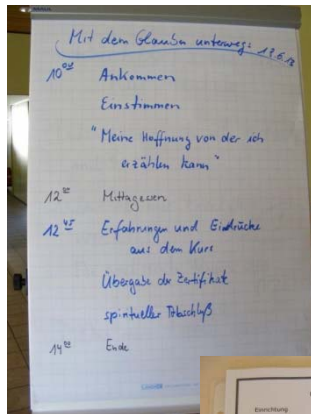 Mit dem Glauben unterwegs
10⁰⁰ Ankommen
Einstimmen
"Meine Hoffnung von der ich
erzählen kann"
12⁰⁰ Mittagessen
12⁴⁵ Erfahrungen und Eindrücke
aus dem Kurs
Übergabe der Zertifikate
spiritueller Abschluß
14⁰⁰ Ende
Einrichtung